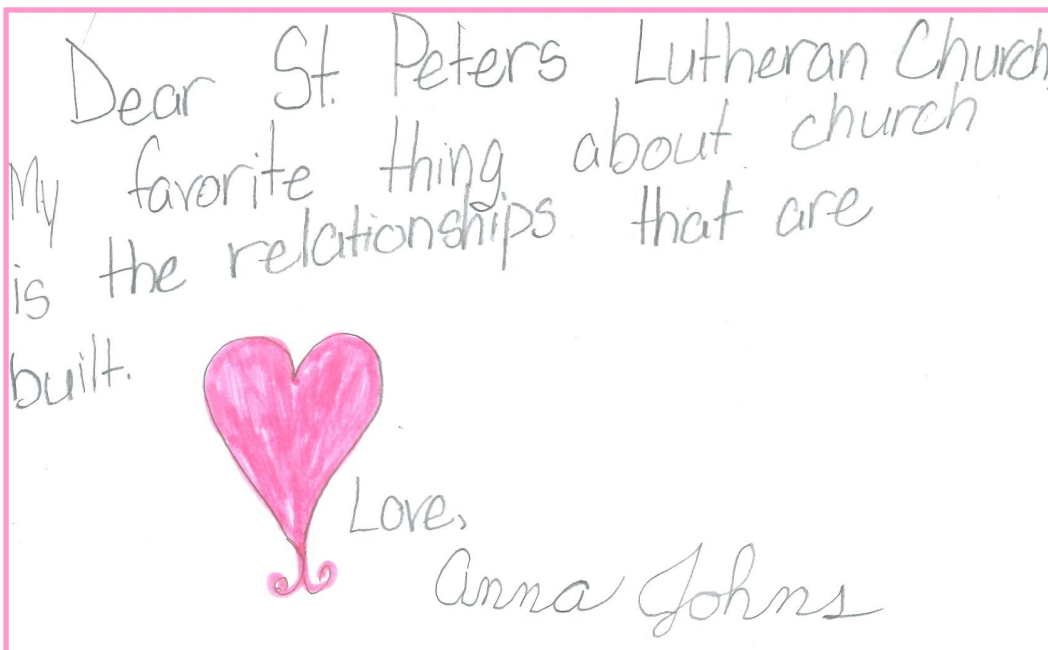 Dear St. Peters Lutheran Church,
My favorite thing about church
is the relationships that are
built.
Love,
Anna Johns